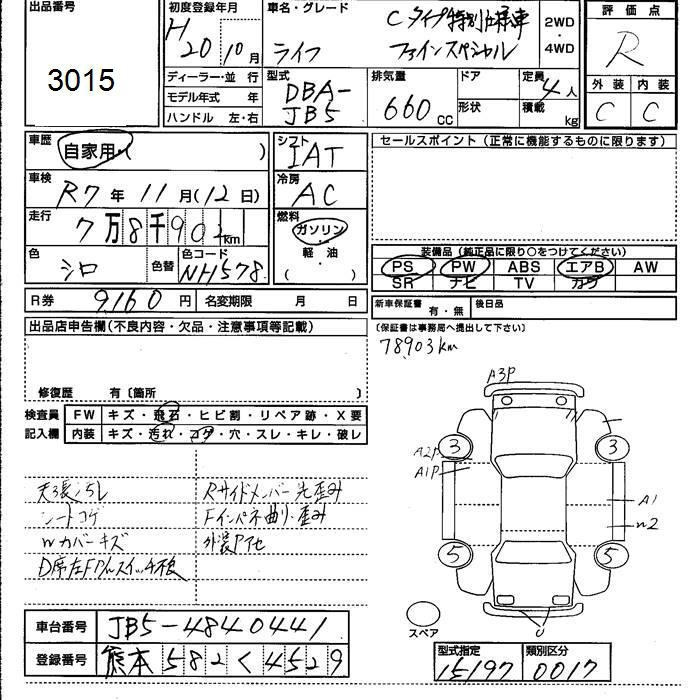 出品番号
3015
初度登録年月
H 20年 10月
車名・グレード
Cタイプ特別仕様車
ライフ ファインスペシャル
2WD
・
4WD
評価点
R
外装 内装
C C
ディーラー・並行
モデル年式 年
ハンドル 左・右
型式
DBA-
JB5
排気量
660 CC
ドア
形状
定員 4人
積載 kg
車歴
自家用・( )
シフト
IAT
車検
R7年 11月(12日)
冷房
AC
走行
7万8千903km
燃料
ガソリン
・
軽・油
( )
色
シロ
色替
色コード
NH578
セールスポイント(正常に機能するものに限ります)
装備品(純正品に限り○をつけてください)
PS PW ABS エアB AW
SR ナビ TV カワ
R券 9160円 名変期限 月 日
新車保証書 有・無 後日品
(保証書は事務局へ提出して下さい)
78903km
出品店申告欄(不良内容・欠品・注意事項等記載)
修復歴 有〔箇所 〕
検査員
記入欄
FW キズ・飛石・ヒビ割・リペア跡・X要
内装 キズ・汚れ・コゲ・穴・スレ・キレ・破レ
天張汚レ
シートコゲ
Wカバーキズ
Rサイドメンバー先歪み
Fインパネ曲り・歪み
A3P
A2P
A1P
3
3
A1
W2
5
5
U
スペア
車台番号 JB5-4840441
登録番号 熊本582く4529
型式指定 類別区分
15197 0017